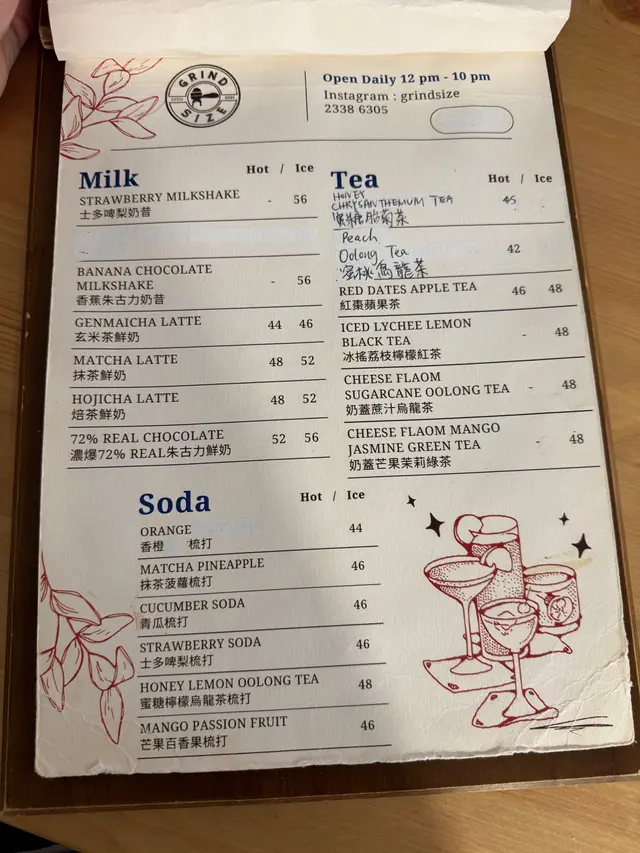 GRIND
SIZE
Open Daily 12 pm - 10 pm
Instagram : grindsize
2338 6305
Milk
Hot / Ice
STRAWBERRY MILKSHAKE - 56
士多啤梨奶昔
BANANA CHOCOLATE
MILKSHAKE - 56
香蕉朱古力奶昔
GENMAICHA LATTE 44 46
玄米茶鮮奶
MATCHA LATTE 48 52
抹茶鮮奶
HOJICHA LATTE 48 52
焙茶鮮奶
72% REAL CHOCOLATE 52 56
濃爆72% REAL朱古力鮮奶
Tea
Hot / Ice
HONEY
CHRYSANTHEMUM TEA 45
蜜糖胎菊茶
Peach
Oolong Tea 42
蜜桃烏龍茶
RED DATES APPLE TEA 46 48
紅棗蘋果茶
ICED LYCHEE LEMON
BLACK TEA - 48
冰搖荔枝檸檬紅茶
CHEESE FLAOM
SUGARCANE OOLONG TEA - 48
奶蓋蔗汁烏龍茶
CHEESE FLAOM MANGO
JASMINE GREEN TEA - 48
奶蓋芒果茉莉綠茶
Soda
Hot / Ice
ORANGE 44
香橙 梳打
MATCHA PINEAPPLE 46
抹茶菠蘿梳打
CUCUMBER SODA 46
青瓜梳打
STRAWBERRY SODA 46
士多啤梨梳打
HONEY LEMON OOLONG TEA 48
蜜糖檸檬烏龍茶梳打
MANGO PASSION FRUIT 46
芒果百香果梳打